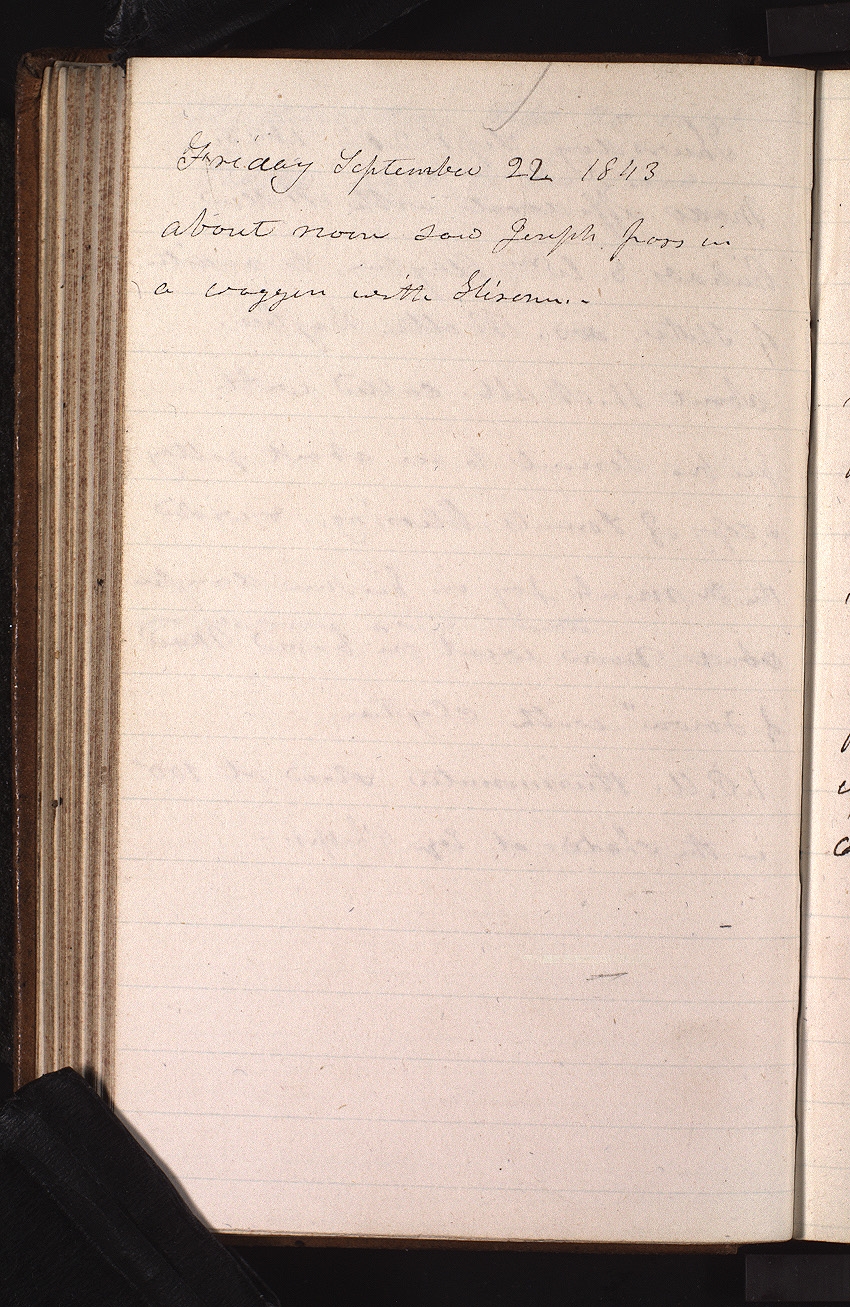 Friday September 22 1843
about noon saw Joseph pass in
a waggen with